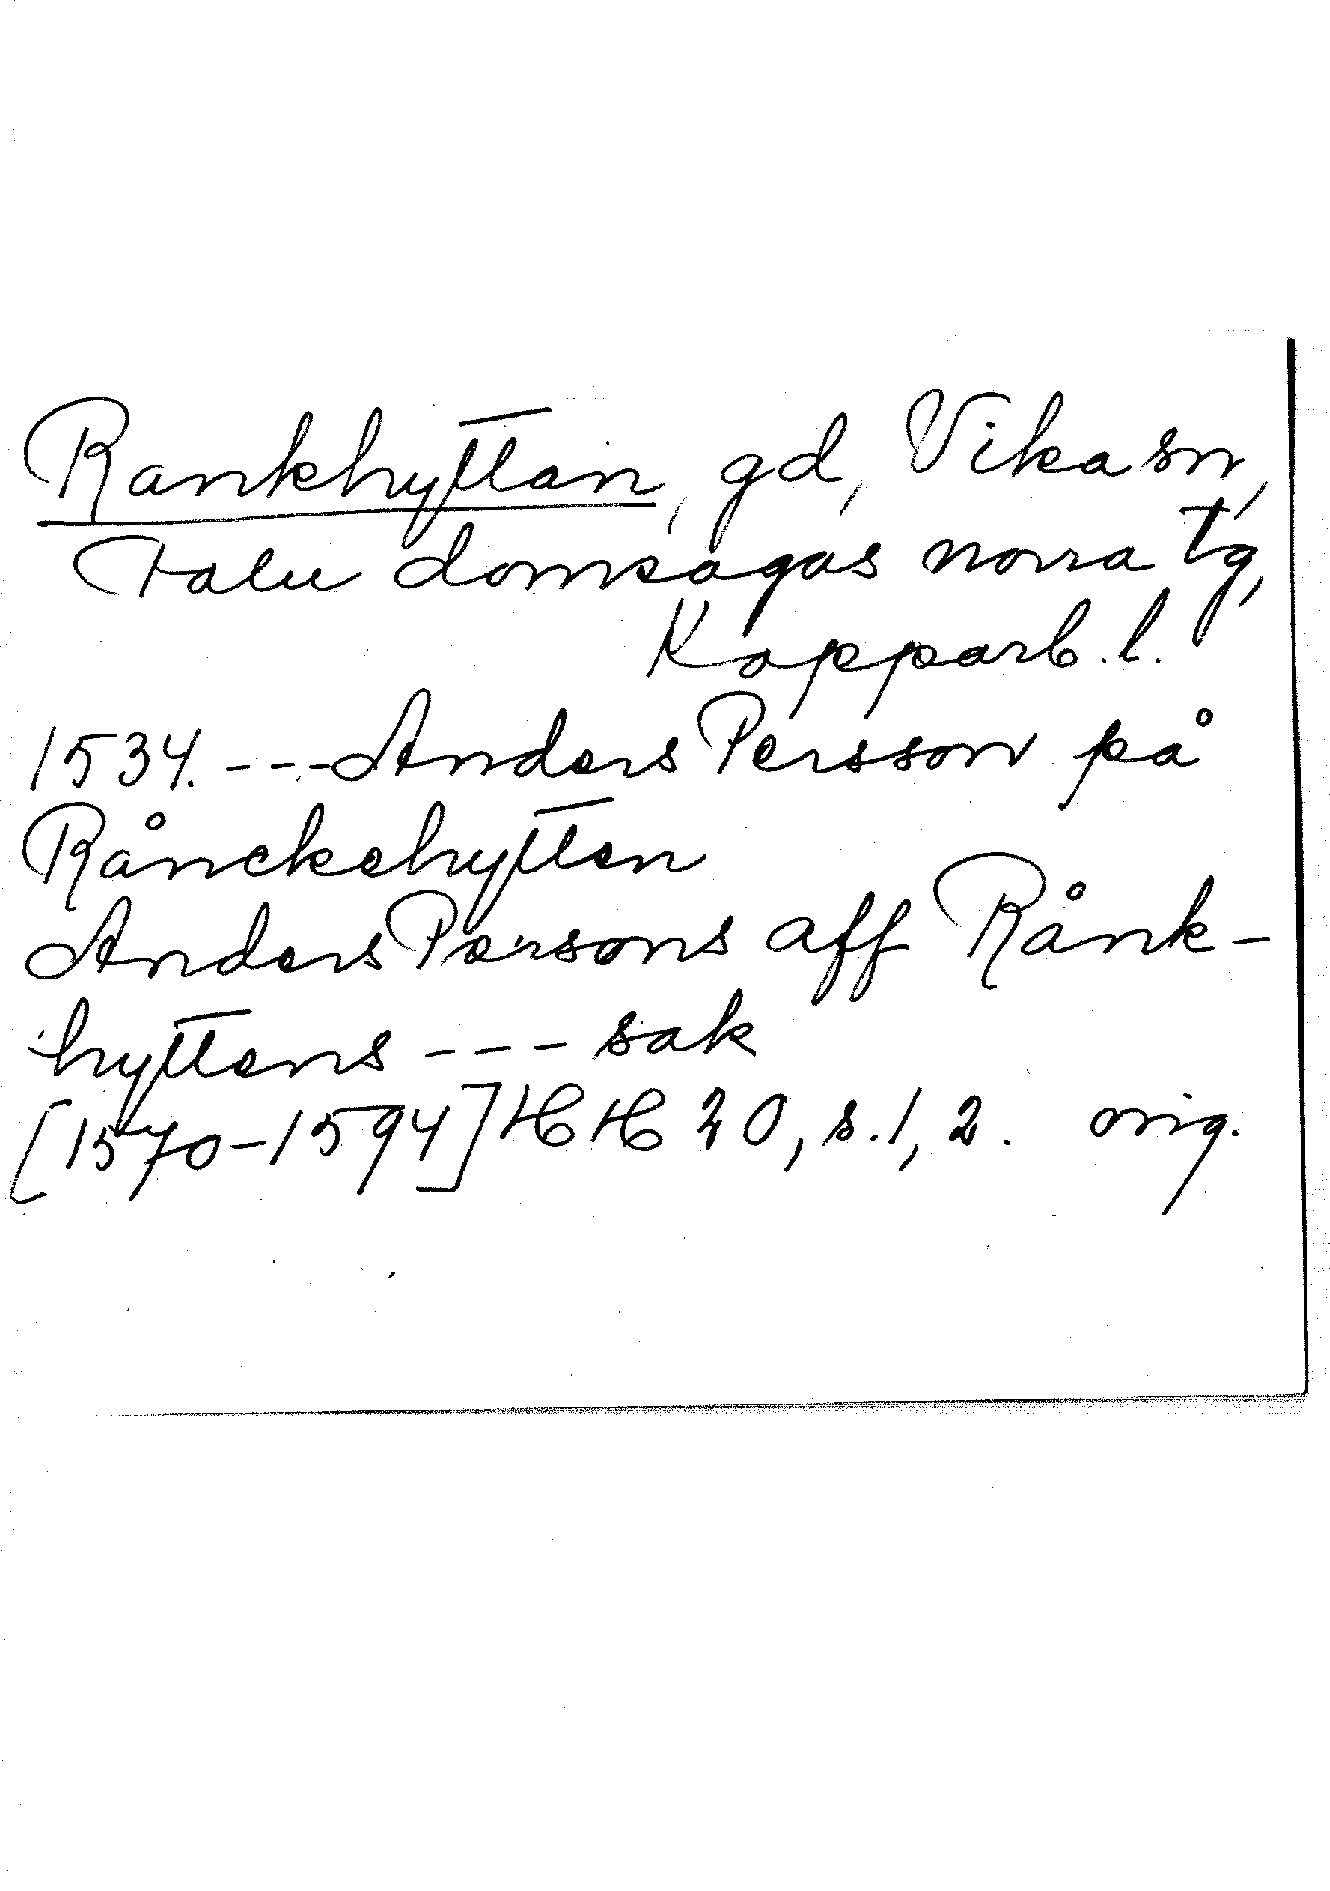 Rankhyttan, gd, Vika sn,
Falu domsagas norra tg,
Kopparb. l.
1534. --- Anders Persson på
Rånckehytten
Anders Persons aff Rånk-
hyttens --- sak
[1570-1594] HH 20, s. 1, 2. orig.